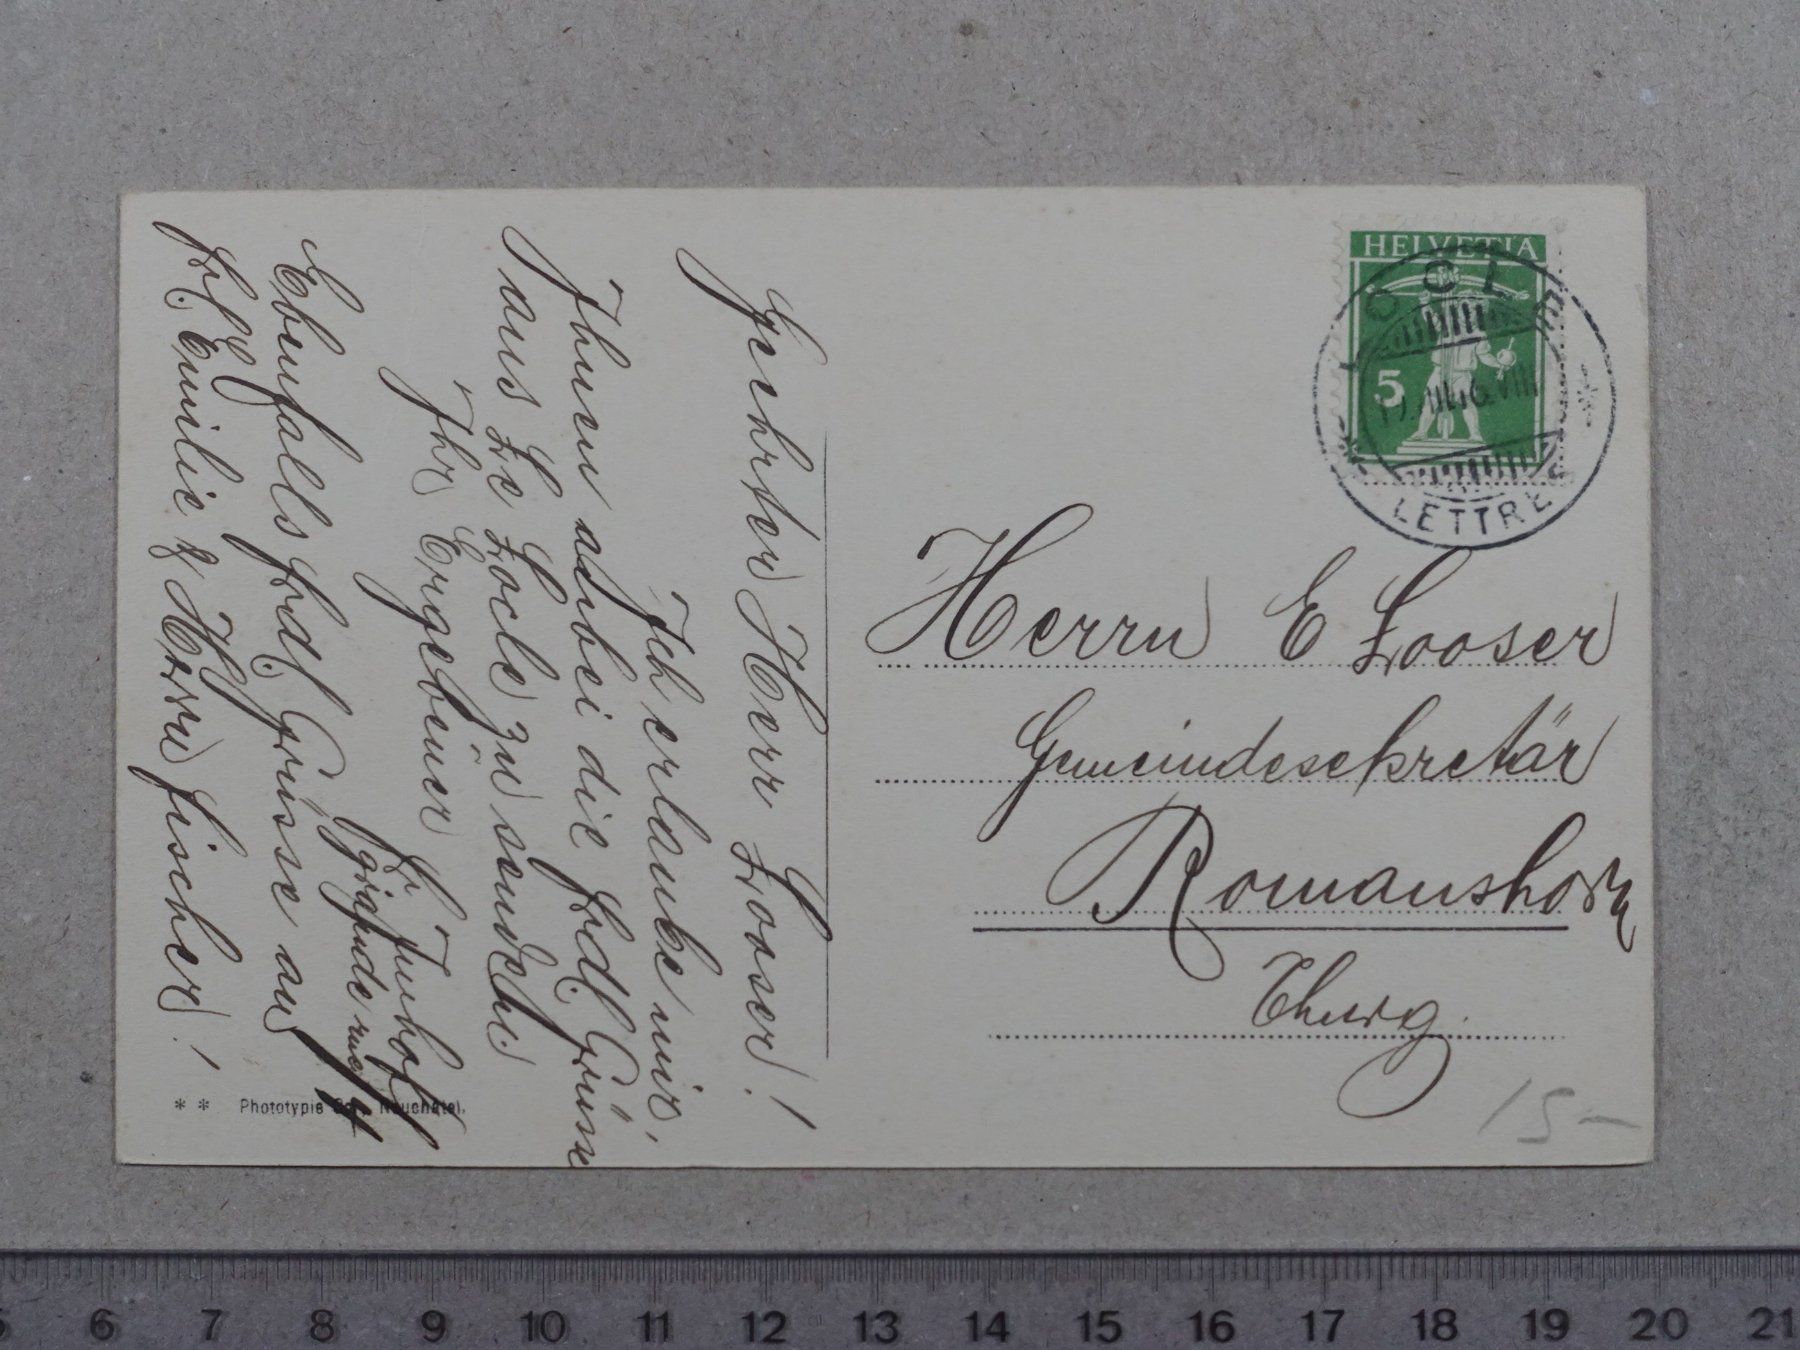 Geehrter Herr Looser!
Ich erlaube mir,
Ihnen anbei die frdl. Grüsse
aus Le Locle zu senden.
Ihr Ergebener
F. Imhof
rue
Ebenfalls frdl. Grüsse an
Frl. Emilie & Herrn Fischer!
** Phototypie Neuchâtel.
HELVETIA
5
LOCLE
VIII
LETTRES
Herrn E Looser
Gemeindesekretär
Romanshorn
Thurg.
15-
6 7 8 9 10 11 12 13 14 15 16 17 18 19 20 21